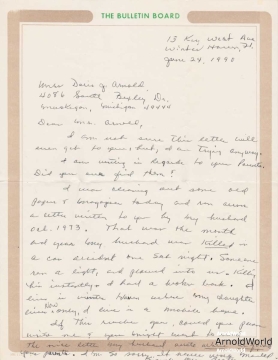 THE BULLETIN BOARD
13 Key West Ave
Winter Haven, Fl.
June 24, 1990
Doris J. Arnold
4086 South Dr.
Muskegon, Michigan 49444
Dear Mrs. Arnold,
I am not sure this letter will
ever get to you, but, I am trying anyway.
I am writing in regards to your Parents.
Did you ever find them?
I was cleaning out some old
Papers & today and ran across
a letter written to you by my husband
Oct. 1973. That was the month
and year my husband was Killed in
a car accident one Sat night. Someone
ran a light, and plowed into us. Killing
him instantly. I had a broken back. I
live in Winter Haven where my daughter
lives now, & I live in a mobile home.
If This reaches you,
write me &
The nice letter my husband wrote
your parents. I'm so sorry it never was mailed
ArnoldWorld